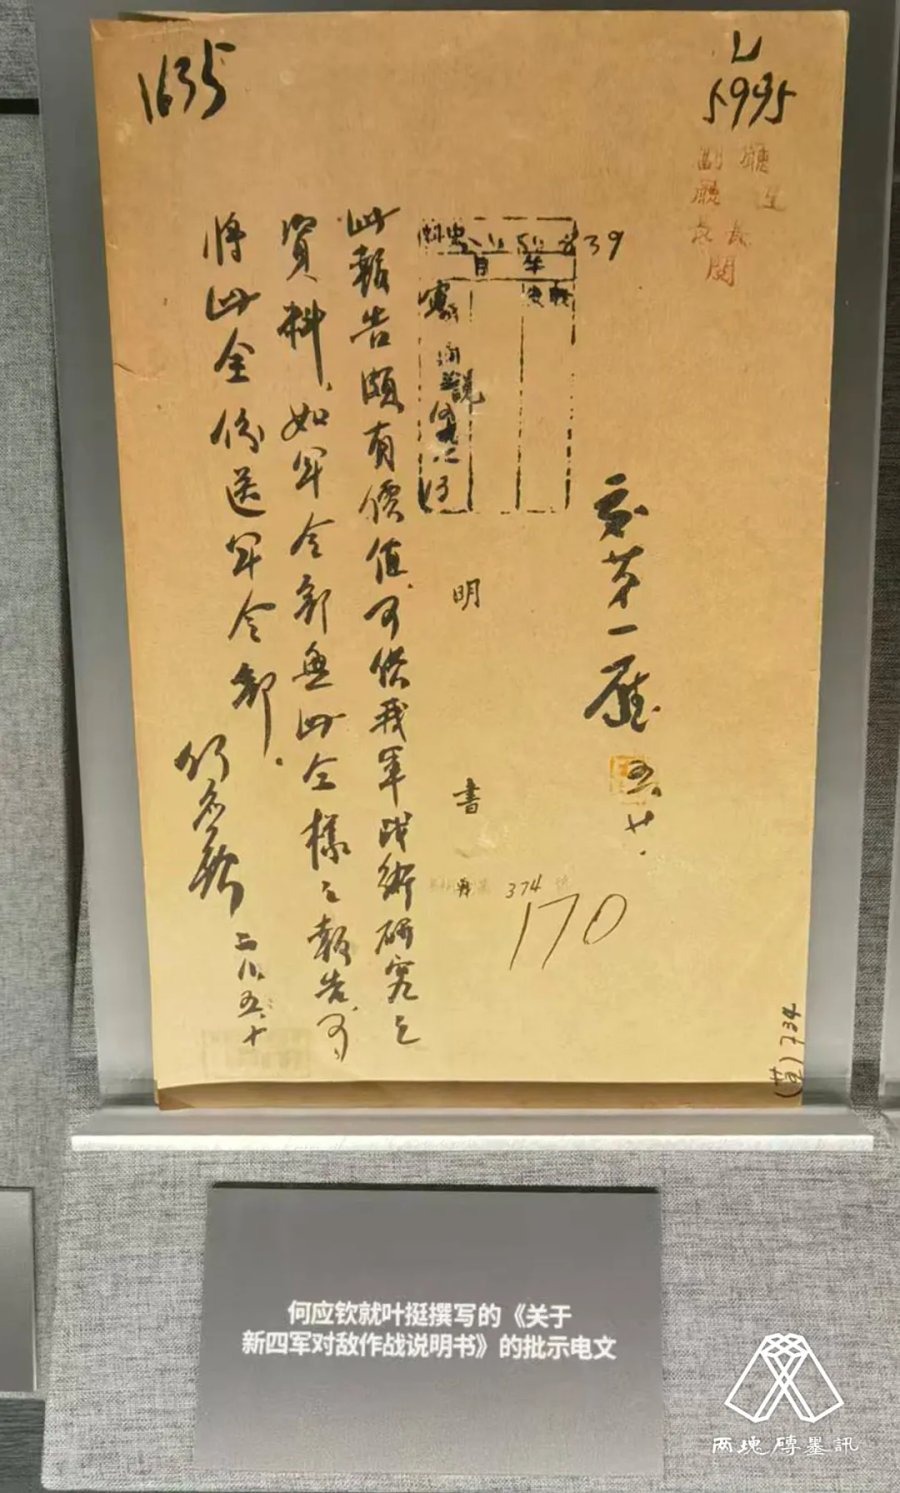 1635
5995
廳長
副廳長
閱
39
交第一廳
五、廿、
明
書
374
170
此報告頗有價值、可供我軍战術研究之
資料、如军令部無此仝樣之報告、可
將此全份送军令部、
何应欽
二八、五、十
734
何应钦就叶挺撰写的《关于
新四军对敌作战说明书》的批示电文
两塊磚墨訊